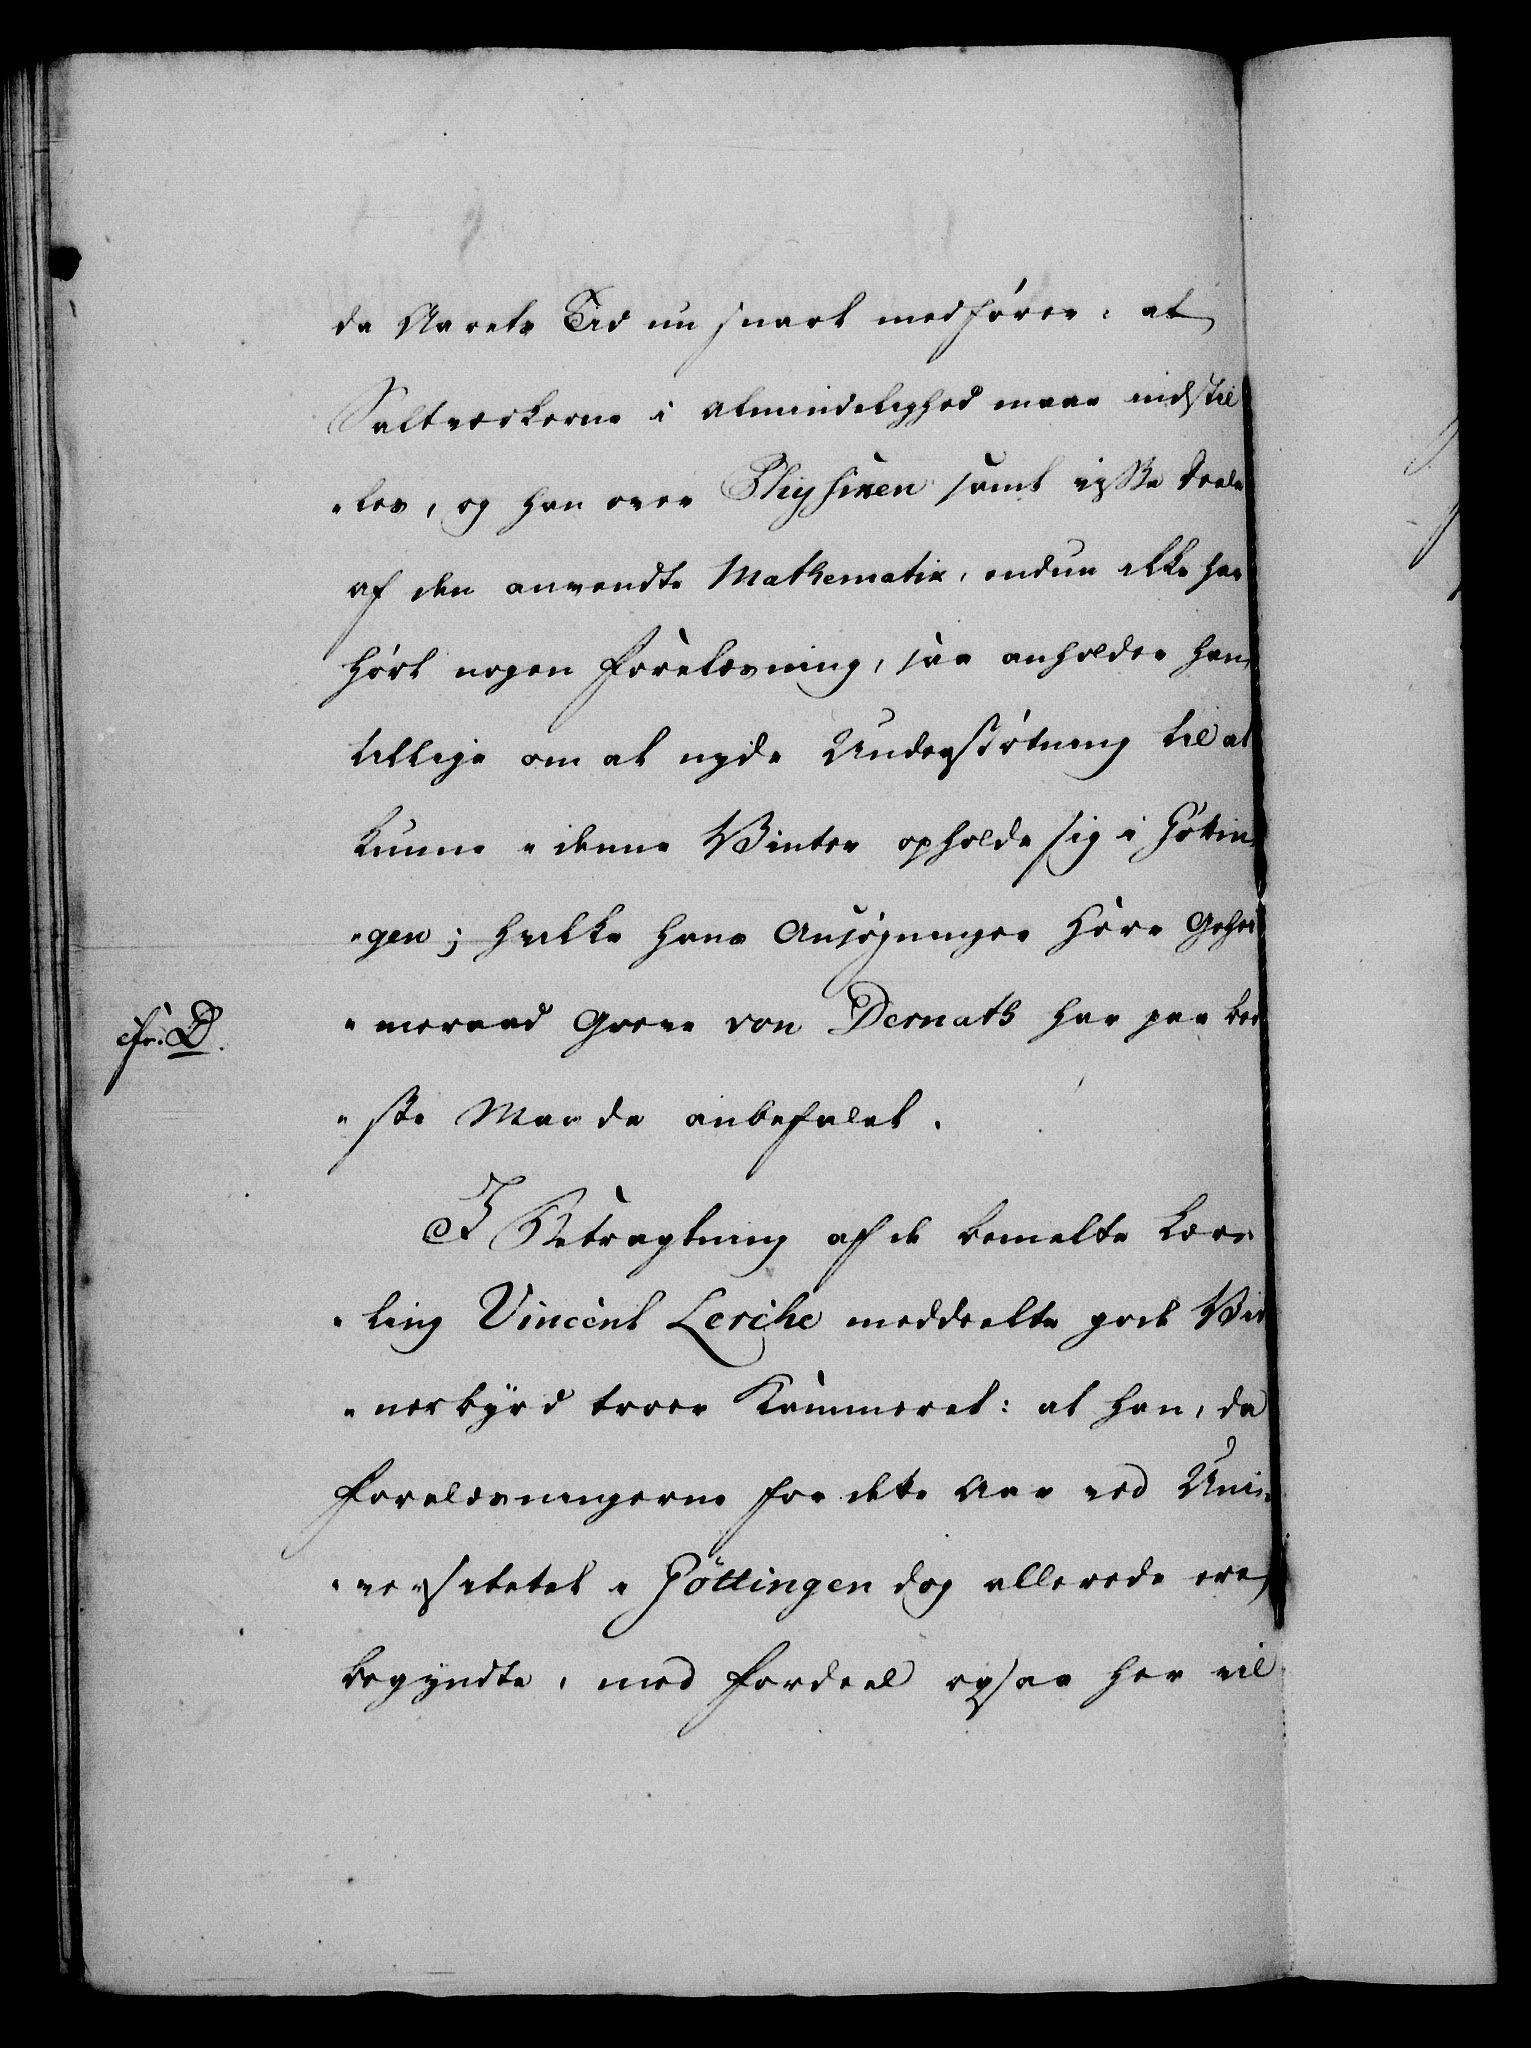 da Aarets Tid nu snart medfører: at
Saltværkerne i Almindelighed maae indstil
"les, og han over Physiken samt visse Deele
af den anvendte Mathematik, endnu ikke har
hørt nogen Forelæsning, saa anholder han
tillige om at nyde Understøtning til at
kunne i denne Vinter opholde sig i Göttin
"gen; hvilke hans Ansøgninger Herr Gehei
"meraad Greve von Dernath har paa bed
cfr. D.
"ste Maade anbefalet.
I Betragtning af de bemelte Lær
"ling Vincent Lerche meddeelte gode Vid
"nesbyrd troer Kammeret: at han, da
Forelæsningerne for dette Aar ved Uni
"versitetet i Göttingen dog allerede ere
begyndte, med Fordeel ogsaa her vil